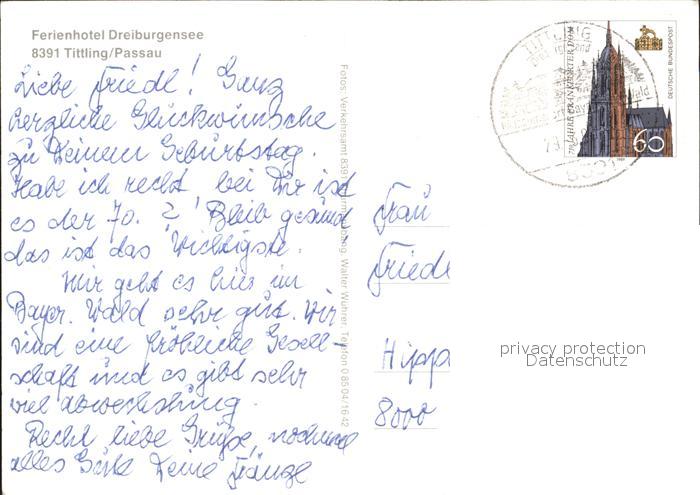 Ferienhotel Dreiburgensee
8391 Tittling/Passau
Liebe Friedl! Ganz
herzliche Glückwünsche
zu Deinem Geburtstag.
Habe ich recht bei Dir ist
es der 70. ? Bleib gesund
das ist das Wichtigste.
Mir geht es hier im
Bayer. Wald sehr gut. Wir
sind eine fröhliche Gesell-
schaft und es gibt sehr
viel abwechslung.
Recht liebe Grüße, nochmal
alles Gute Deine
Fotos: Verkehrsamt 8391
Walter Wührer, Telefon 0 85 04/16 42
TITTLING
8391
750 JAHRE FRANKFURTER DOM
DEUTSCHE BUNDESPOST
60
1989
Frau
Friedl
Hipp
8000
privacy protection
Datenschutz